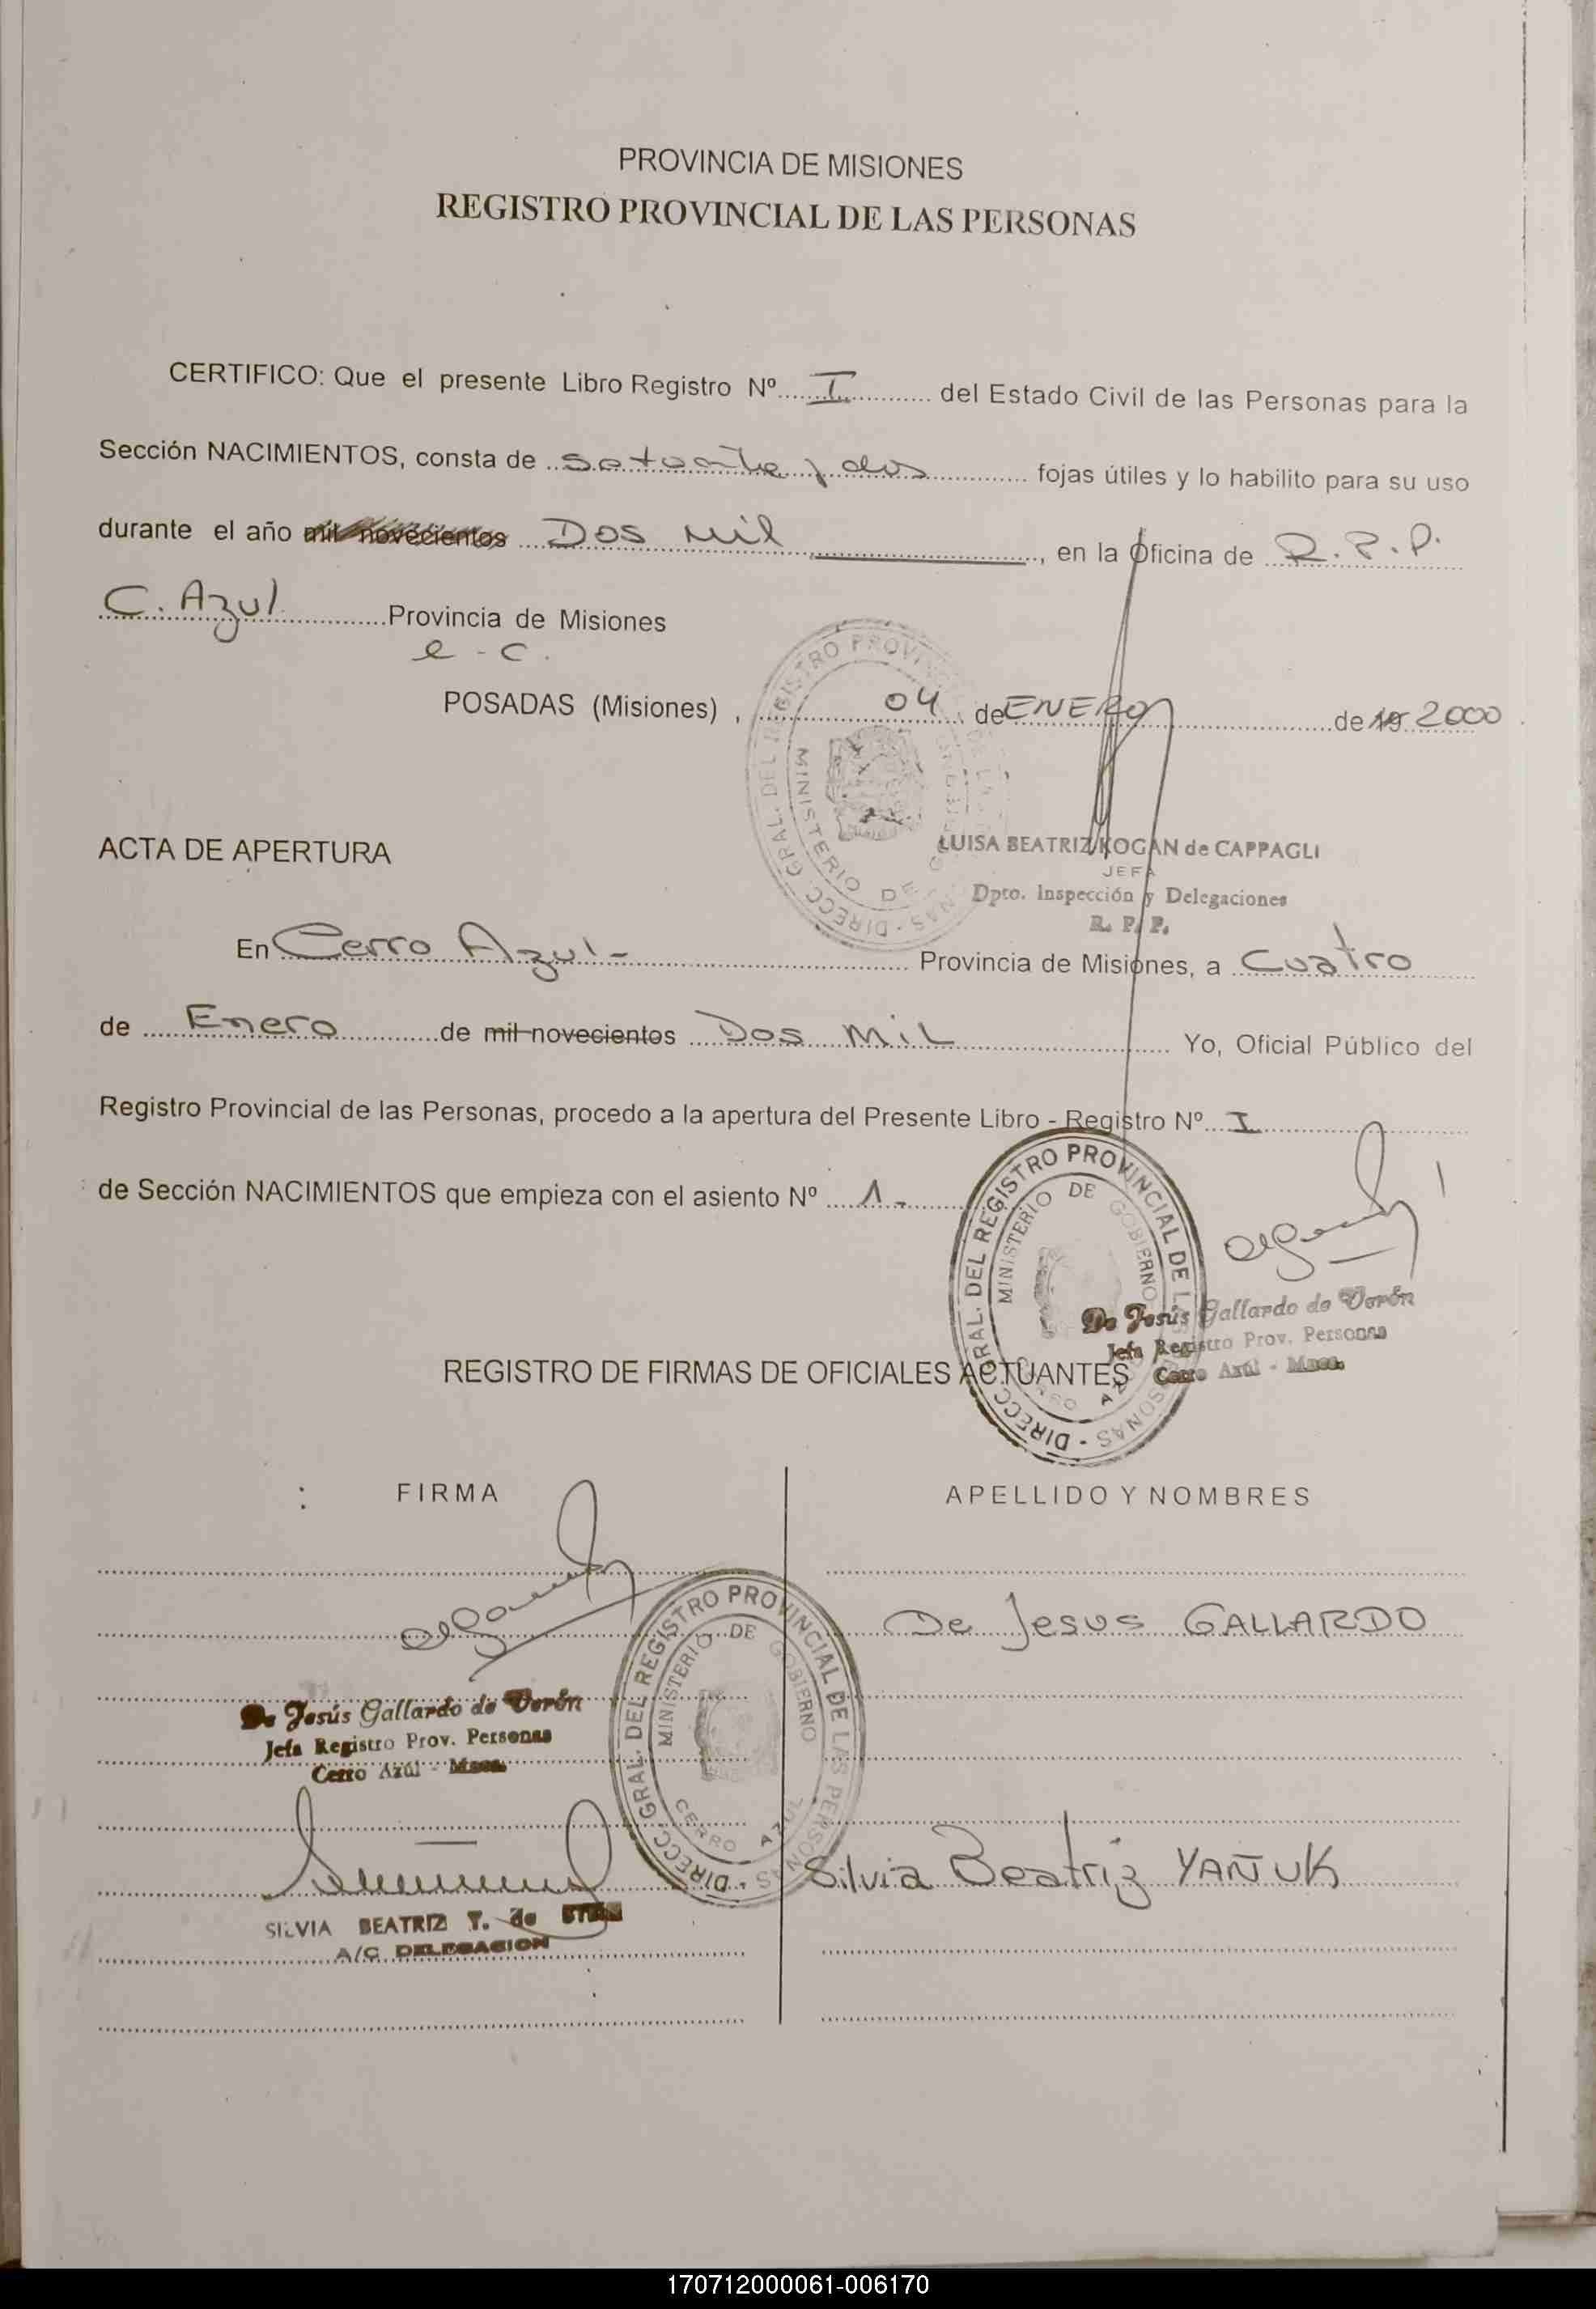 PROVINCIA DE MISIONES
REGISTRO PROVINCIAL DE LAS PERSONAS
CERTIFICO: Que el presente Libro Registro Nº I del Estado Civil de las Personas para la
Sección NACIMIENTOS, consta de setenta y dos fojas útiles y lo habilito para su uso
durante el año mil novecientos Dos Mil, en la Oficina de R.P.P.
C. Azul Provincia de Misiones
e - c.
POSADAS (Misiones), 04 de ENERO de 19 2000
DIRECC. GRAL. DEL REGISTRO PROVINCIAL DE LAS PERSONAS
MINISTERIO DE GOBIERNO
LUISA BEATRIZ KOGAN de CAPPAGLI
JEFA
Dpto. Inspección y Delegaciones
R. P. P.
ACTA DE APERTURA
En Cerro Azul - Provincia de Misiones, a Cuatro
de Enero de mil novecientos Dos Mil Yo, Oficial Público del
Registro Provincial de las Personas, procedo a la apertura del Presente Libro - Registro Nº I
de Sección NACIMIENTOS que empieza con el asiento Nº 1-
DIRECC. GRAL. DEL REGISTRO PROVINCIAL DE LAS PERSONAS
MINISTERIO DE GOBIERNO
CERRO AZUL
De Jesús Gallardo de Verón
Jefa Registro Prov. Personas
Cerro Azúl - Mnes.
REGISTRO DE FIRMAS DE OFICIALES ACTUANTES
FIRMA
APELLIDO Y NOMBRES
De Jesus GALLARDO
De Jesús Gallardo de Verón
Jefa Registro Prov. Personas
Cerro Azúl - Mnes.
DIRECC. GRAL. DEL REGISTRO PROVINCIAL DE LAS PERSONAS
MINISTERIO DE GOBIERNO
CERRO AZUL
Silvia Beatriz YAÑUK
SILVIA BEATRIZ Y. de
A/C DELEGACION
170712000061-006170